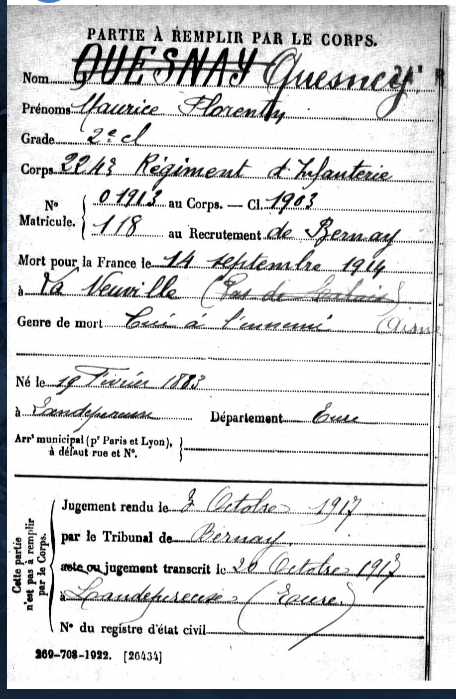 PARTIE À REMPLIR PAR LE CORPS.
Nom QUESNAY Quesney
Prénoms Maurice Florentin
Grade 2e cl
Corps 224e Régiment d'Infanterie
No Matricule. 01913 au Corps. — Cl. 1903
118 au Recrutement de Bernay
Mort pour la France le 14 septembre 1914
à La Neuville (Pas de Calais) (Aisne
Genre de mort Tué à l'ennemi
Né le 19 Février 1883
à Landepereuse Département Eure
Arrt municipal (pr Paris et Lyon), à défaut rue et No.
Cette partie n'est pas à remplir par le Corps.
Jugement rendu le 2 Octobre 1917
par le Tribunal de Bernay
acte ou jugement transcrit le 20 Octobre 1917
à Landepereuse (Eure)
No du registre d'état civil
269-708-1922. [26434]